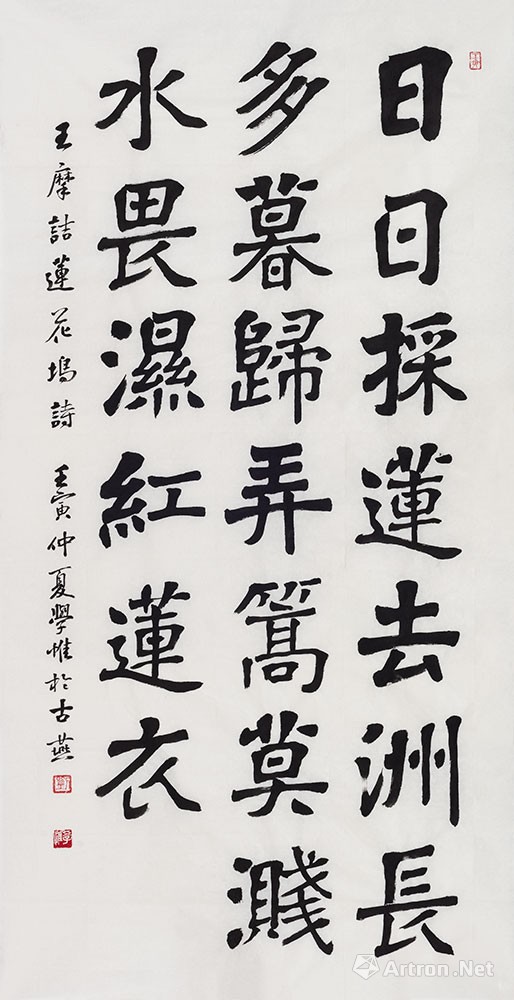 日日採蓮去洲長
多暮歸弄篙莫濺
水畏濕紅蓮衣
王摩詰蓮花塢詩 壬寅仲夏學惟於古燕
Artron.Net